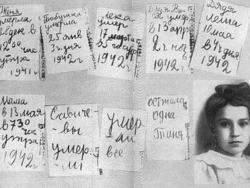 Женя
мерла
дек в
12 00 час
утра
1941 г
Бабушка
умерла
25 янв
3 ч дня
1942 г
Лека
умер
17 марта
1942 г
Дядя
умер
в 13 апр
2 ч
1942 г
Дядя
Леша
10 мая
в 4 ч дня
1942 г
Мама
в 13 мая
в 7 30
час
утра
1942 г
Савиче-
вы
умер-
ли
умер
ли
все
остала
одна
Таня